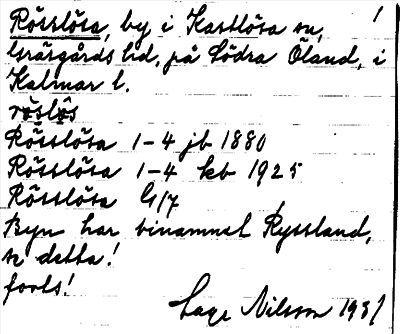 Rösslösa, by i Kastlösa sn, 1
Gräsgårds hd, på Södra Öland, i
Kalmar l.
röslös
Rösslösa 1-4 jb 1880
Rösslösa 1-4 kb 1925
Rösslösa G17
Byn har binamnet Ryssland,
se detta!
forts!
Lage Nilsson 1937